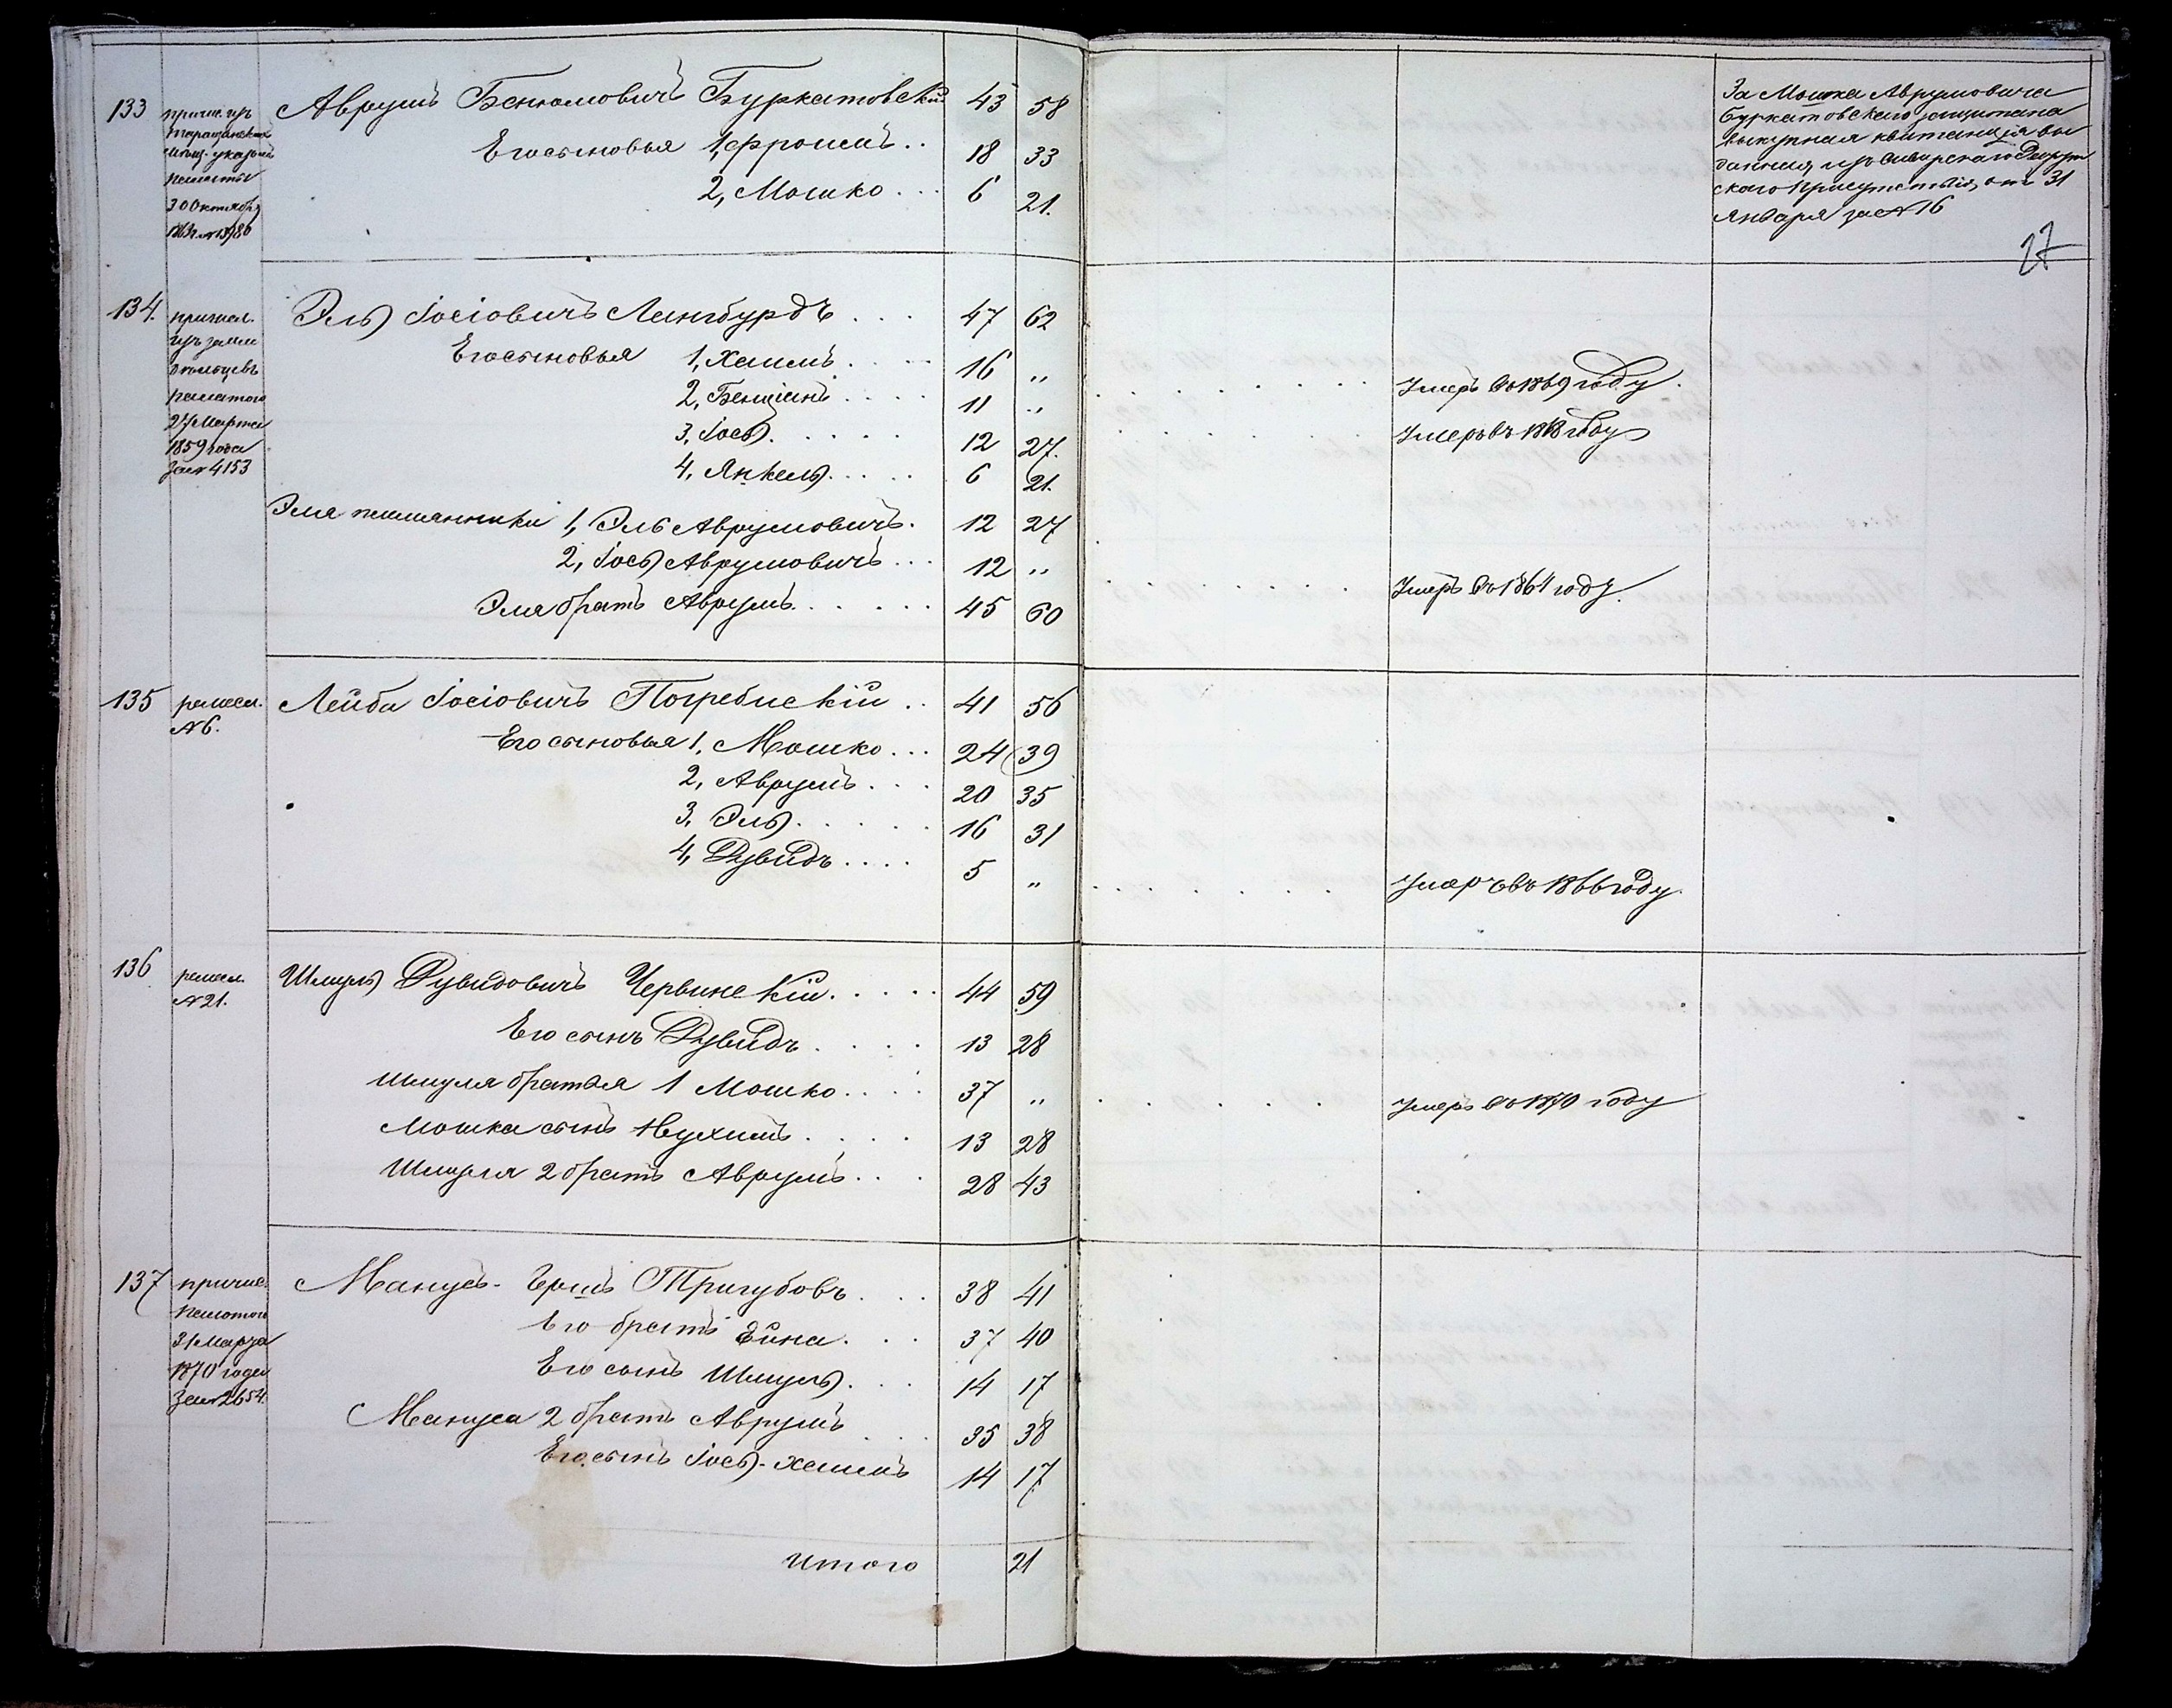 133 причис. изъ Аврумъ Бенюмовичъ Буркатовскій 43 58
Таращанскихъ
мѣщ. указомъ Его сыновья 1, Фроимъ . . 18 33
палаты 2, Мошко . . . 6 21.
30 Октября
1863 г. №13980
За Мошка Аврумовича
Буркатовскаго зачитана
выкупная квитанція вы
данная изъ Рекрут
скаго Присутствія отъ 31
Января за №16
27
134. причисл. Эль Іосіовичъ Лингбурдъ . . . 47 62
изъ земле Его сыновья 1, Хаимъ . . . . 16 „ . . . . . . . . Умеръ въ 1869 году.
дѣльцевъ 2, Бенціанъ . . . . 11 „ . . . . . . . Умеръ въ 1868 году
палатою 3, Іось . . . . . 12 27.
27 Марта 4, Янкель . . . . . 6 21.
1859 года
за № 4153
Эля племянники 1, Эль Аврумовичъ . 12 27
2, Іось Аврумовичъ . . . 12 „ . . . . . . . Умеръ въ 1864 году.
Эля братъ Аврумъ . . . . . . 45 60
135 ремесл. Лейба Іосіовичъ Погребискій . . 41 56
№6. Его сыновья 1, Мошко . . . 24 39
2, Аврумъ . . . 20 35
3, Эль . . . . . . 16 31
4, Дувидъ . . . . 5 „ . . . . . . . Умеръ въ 1866 году.
136 ремесл. Шмуль Дувидовичъ Червинскій . . . . . 44 59
№21. Его сынъ Дувидъ . . . . 13 28
Шмуля братья 1 Мошко . . . . 37 „ . . . . . . Умеръ въ 1870 году
Мошка сынъ Нухимъ . . . . 13 28
Шмуля 2 братъ Аврумъ . . . 28 43
137 причис. Манусъ-Гершъ Тригубовъ . . . 38 41
палатою Его братъ Ейна . . . 37 40
31 Марта Его сынъ Шмуль . . . 14 17
1870 года Мануса 2 братъ Аврумъ . . . 35 38
за № 2654. Его сынъ Іось-Хаимъ 14 17
Итого 21